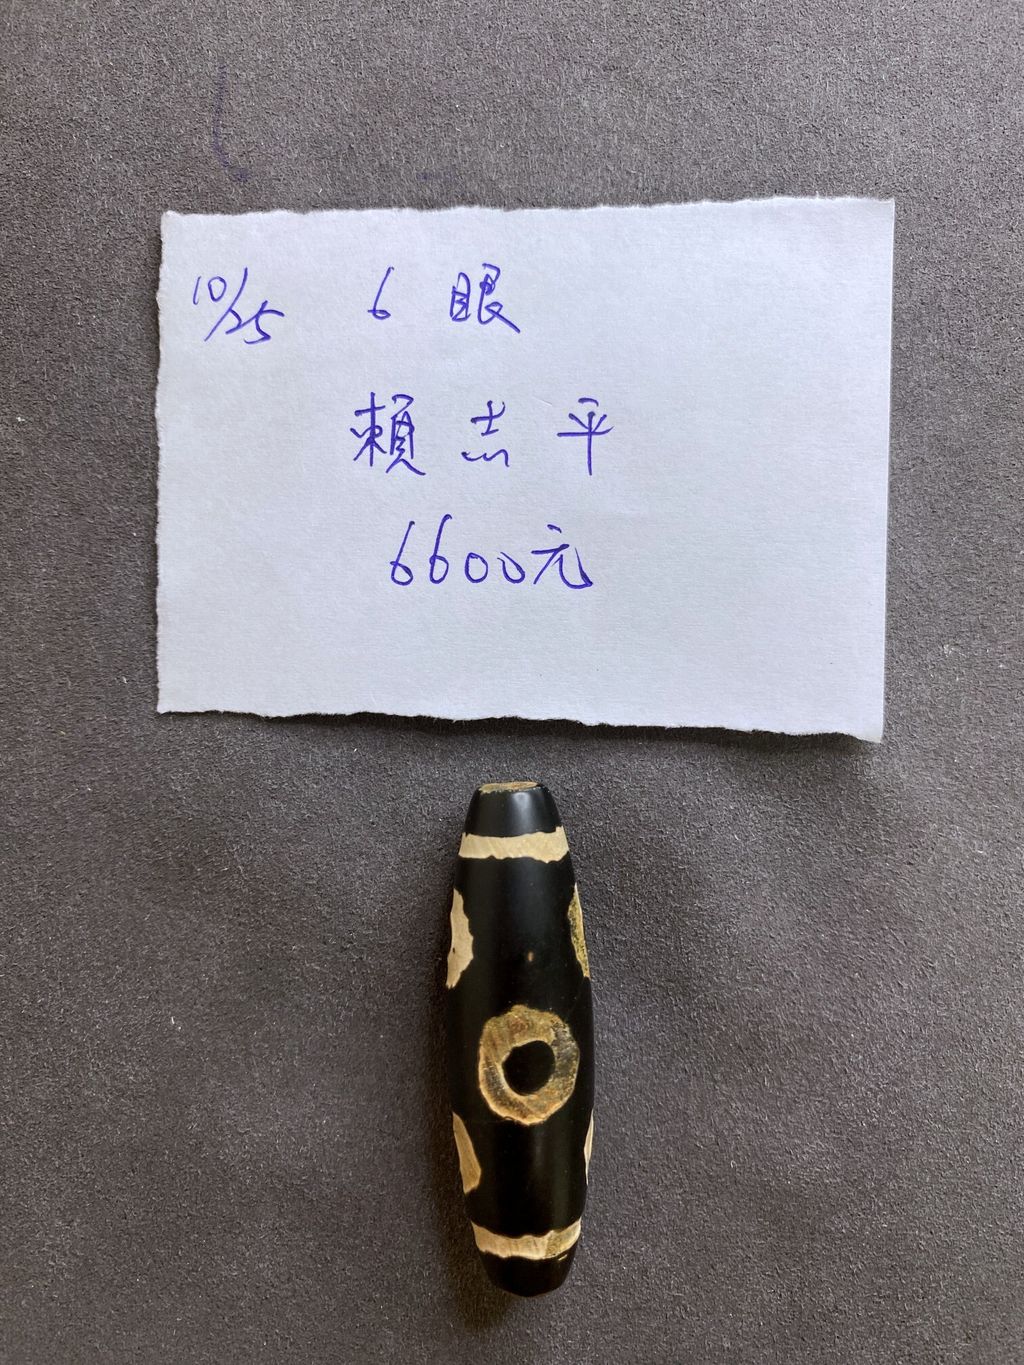 10/25 6 眼
賴志平
6600元